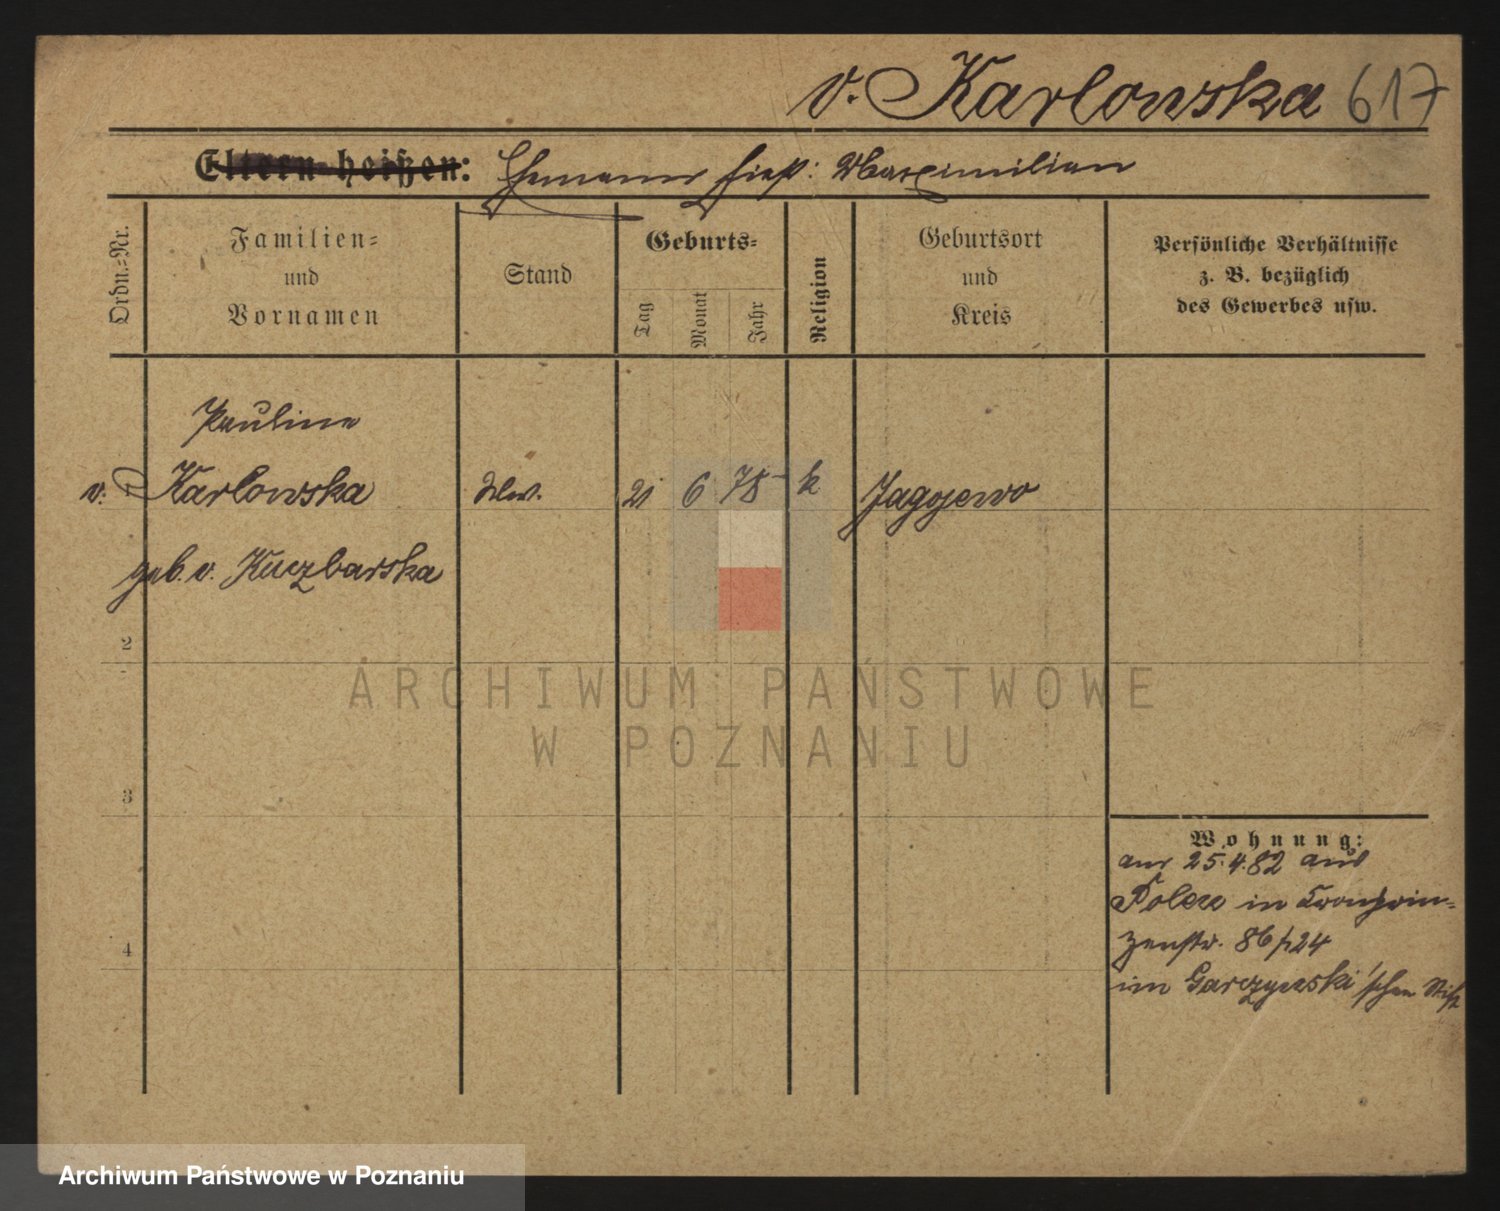 v. Karlowska 617
Eltern heißen: Ehemann hieß: Maximilian
Ordn.-Nr.
Familien-
und
Vornamen
Stand
Geburts-
Tag
Monat
Jahr
Religion
Geburtsort
und
Kreis
Persönliche Verhältnisse
z. B. bezüglich
des Gewerbes usw.
Pauline
v. Karlowska Ww. 21 6 78 k
geb. v. Kuczbarska
2
ARCHIWUM PAŃSTWOWE
W POZNANIU
3
Wohnung:
25.4.82 aus
Polen in Kronprin-
zenstr. 86/124
im Garczynski'schen Stift
4
Archiwum Państwowe w Poznaniu